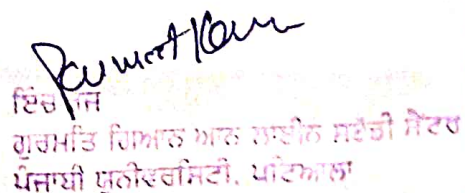 Parmeet Kaur
ਇੰਚਾਰਜ
ਗੁਰਮਤਿ ਗਿਆਨ ਆਨ ਲਾਈਨ ਸਟੱਡੀ ਸੈਂਟਰ
ਪੰਜਾਬੀ ਯੂਨੀਵਰਸਿਟੀ, ਪਟਿਆਲਾ